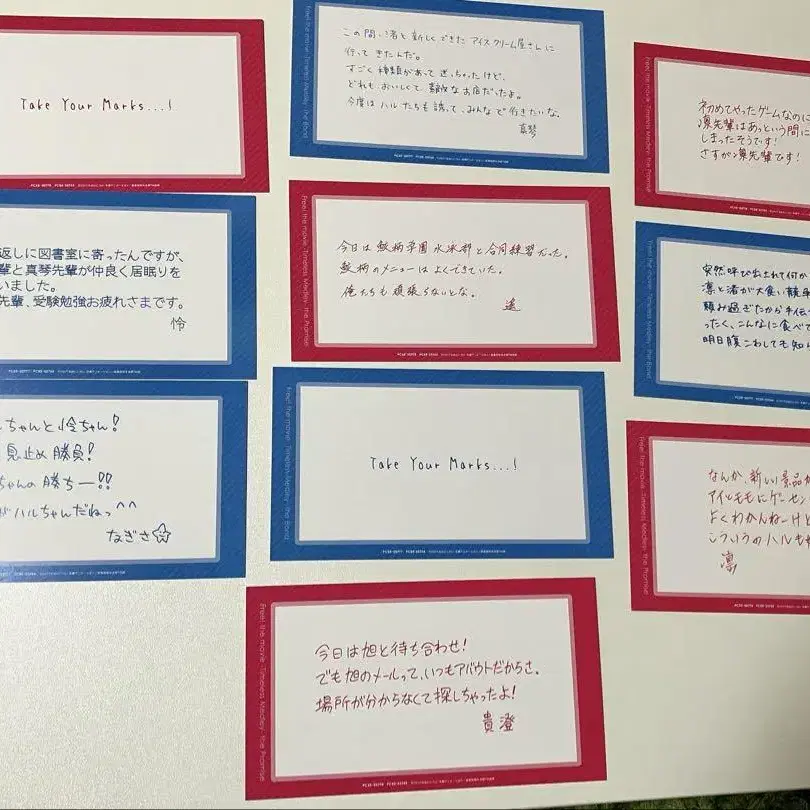 Take Your Marks...!
返しに図書室に寄ったんですが、
輩と真琴先輩が仲良く居眠りを
いました。
先輩、受験勉強お疲れさまです。
怜
ちゃんと怜ちゃん!
息止め勝負!
ちゃんの勝ちー!!
がハルちゃんだねっ^^
なぎさ☆
Free! the movie -Timeless Medley- the Bond
この間、渚と新しくできたアイスクリーム屋さんに
行ってきたんだ。
すごく種類があって迷っちゃったけど、
どれもおいしくて素敵なお店だったよ。
今度はハルたちも誘って、みんなで行きたいな。
真琴
Free! the movie -Timeless Medley- the Promise
今日は鮫柄学園水泳部と合同練習だった。
鮫柄のメニューはよくできていた。
俺たちも頑張らないとな。
遙
Free! the movie -Timeless Medley- the Bond
Take Your Marks...!
Free! the movie -Timeless Medley- the Promise
今日は旭と待ち合わせ!
でも旭のメールって、いつもアバウトだからさ、
場所が分からなくて探しちゃったよ!
貴澄
Free! the movie -Timeless Medley- the Promise
初めてやったゲームなのに
凛先輩はあっという間に
しまったそうです!
さすが凛先輩です!
Free! the movie -Timeless Medley- the Bond
突然呼び出されて何か
凛と渚が大食い競争
頼み過ぎたから手伝
ったく、こんなに食べて
明日腹こわしても知ら
Free! the movie -Timeless Medley- the Promise
なんか、新しい景品が
アイとモモにゲーセン
よくわかんねーけど
こういうのハルも
凛